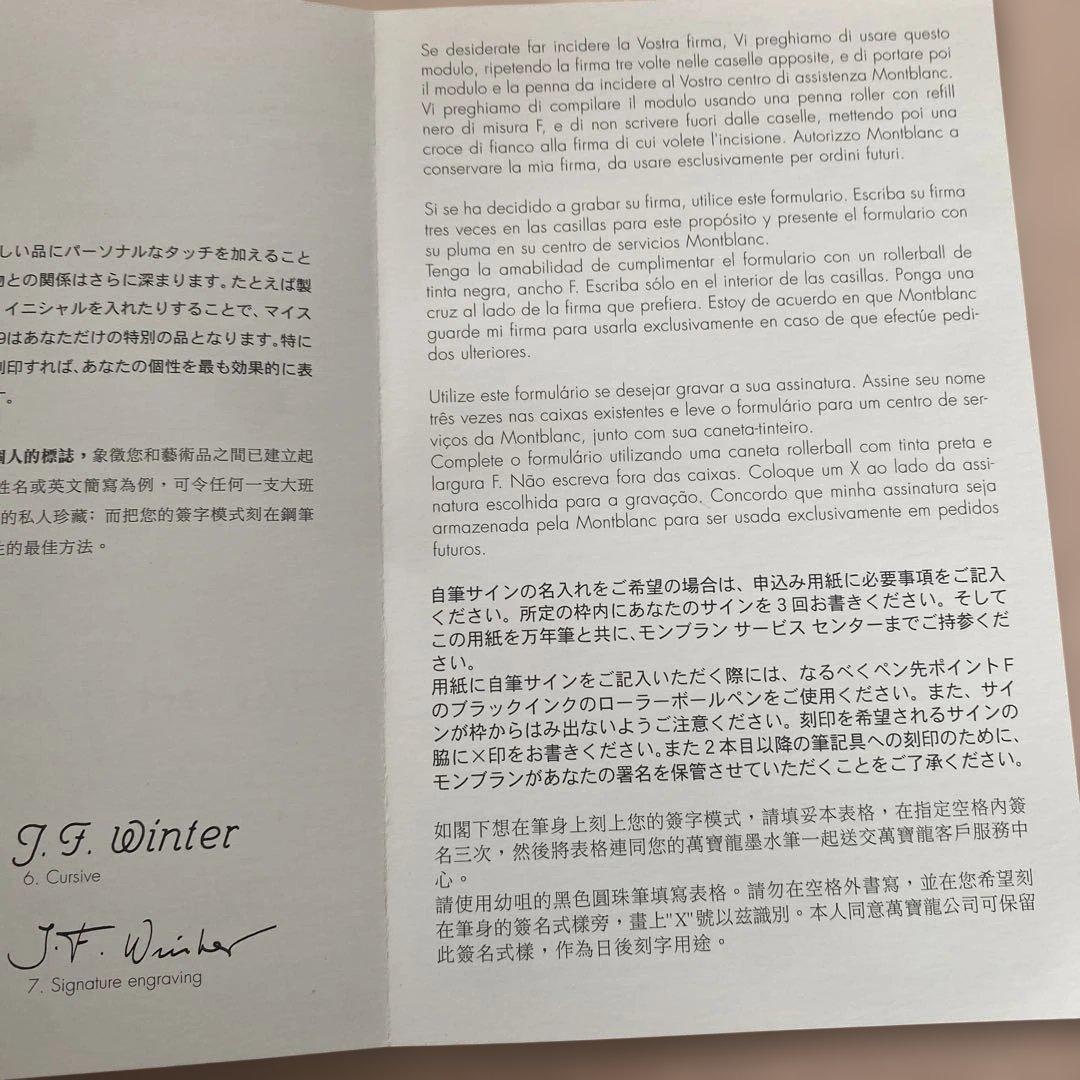 しい品にパーソナルなタッチを加えること
物との関係はさらに深まります。たとえば製
イニシャルを入れたりすることで、マイス
9はあなただけの特別の品となります。特に
刻印すれば、あなたの個性を最も効果的に表
す。
個人的標誌，象徵您和藝術品之間已建立起
姓名或英文簡寫為例，可令任何一支大班
的私人珍藏；而把您的簽字模式刻在鋼筆
性的最佳方法。
J. F. Winter
6. Cursive
J. F. Winter
7. Signature engraving
Se desiderate far incidere la Vostra firma, Vi preghiamo di usare questo
modulo, ripetendo la firma tre volte nelle caselle apposite, e di portare poi
il modulo e la penna da incidere al Vostro centro di assistenza Montblanc.
Vi preghiamo di compilare il modulo usando una penna roller con refill
nero di misura F, e di non scrivere fuori dalle caselle, mettendo poi una
croce di fianco alla firma di cui volete l'incisione. Autorizzo Montblanc a
conservare la mia firma, da usare esclusivamente per ordini futuri.
Si se ha decidido a grabar su firma, utilice este formulario. Escriba su firma
tres veces en las casillas para este propósito y presente el formulario con
su pluma en su centro de servicios Montblanc.
Tenga la amabilidad de cumplimentar el formulario con un rollerball de
tinta negra, ancho F. Escriba sólo en el interior de las casillas. Ponga una
cruz al lado de la firma que prefiera. Estoy de acuerdo en que Montblanc
guarde mi firma para usarla exclusivamente en caso de que efectúe pedi-
dos ulteriores.
Utilize este formulário se desejar gravar a sua assinatura. Assine seu nome
três vezes nas caixas existentes e leve o formulário para um centro de ser-
viços da Montblanc, junto com sua caneta-tinteiro.
Complete o formulário utilizando uma caneta rollerball com tinta preta e
largura F. Não escreva fora das caixas. Coloque um X ao lado da assi-
natura escolhida para a gravação. Concordo que minha assinatura seja
armazenada pela Montblanc para ser usada exclusivamente em pedidos
futuros.
自筆サインの名入れをご希望の場合は、申込み用紙に必要事項をご記入
ください。所定の枠内にあなたのサインを3回お書きください。そして
この用紙を万年筆と共に、モンブラン サービス センターまでご持参くだ
さい。
用紙に自筆サインをご記入いただく際には、なるべくペン先ポイントF
のブラックインクのローラーボールペンをご使用ください。また、サイ
ンが枠からはみ出ないようご注意ください。刻印を希望されるサインの
脇に×印をお書きください。また2本目以降の筆記具への刻印のために、
モンブランがあなたの署名を保管させていただくことをご了承ください。
如閣下想在筆身上刻上您的簽字模式，請填妥本表格，在指定空格內簽
名三次，然後將表格連同您的萬寶龍墨水筆一起送交萬寶龍客戶服務中
心。
請使用幼咀的黑色圓珠筆填寫表格。請勿在空格外書寫，並在您希望刻
在筆身的簽名式樣旁，畫上"X"號以茲識別。本人同意萬寶龍公司可保留
此簽名式樣，作為日後刻字用途。